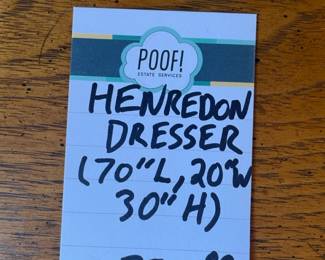 POOF!
ESTATE SERVICES
HENREDON
DRESSER
(70"L, 20"W
30"H)